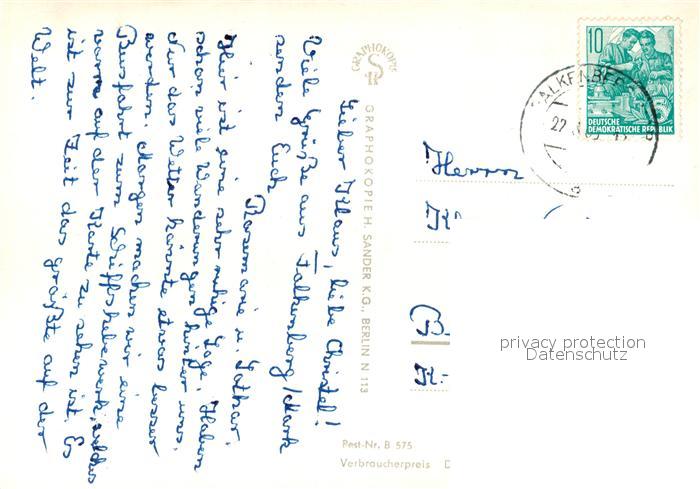 Lieber Klaus, liebe Christel!
Viele Grüße aus Falkenberg/Mark
senden Euch
Rosemarie u. Lothar.
Hier ist eine sehr ruhige Lage. Haben
schon viele Wanderungen hinter uns.
Nur das Wetter könnte etwas besser
werden. Morgen machen wir eine
Busfahrt zum Schiffshebewerk, welches
vorne auf der Karte zu sehen ist. Es
ist zur Zeit das größte auf der
Welt.
GRAPHOKOPIE
GRAPHOKOPIE H. SANDER K.G., BERLIN N 113
10
DEUTSCHE
DEMOKRATISCHE REPUBLIK
FALKENBERG
Herrn
privacy protection
Datenschutz
Best-Nr. B 575
Verbraucherpreis